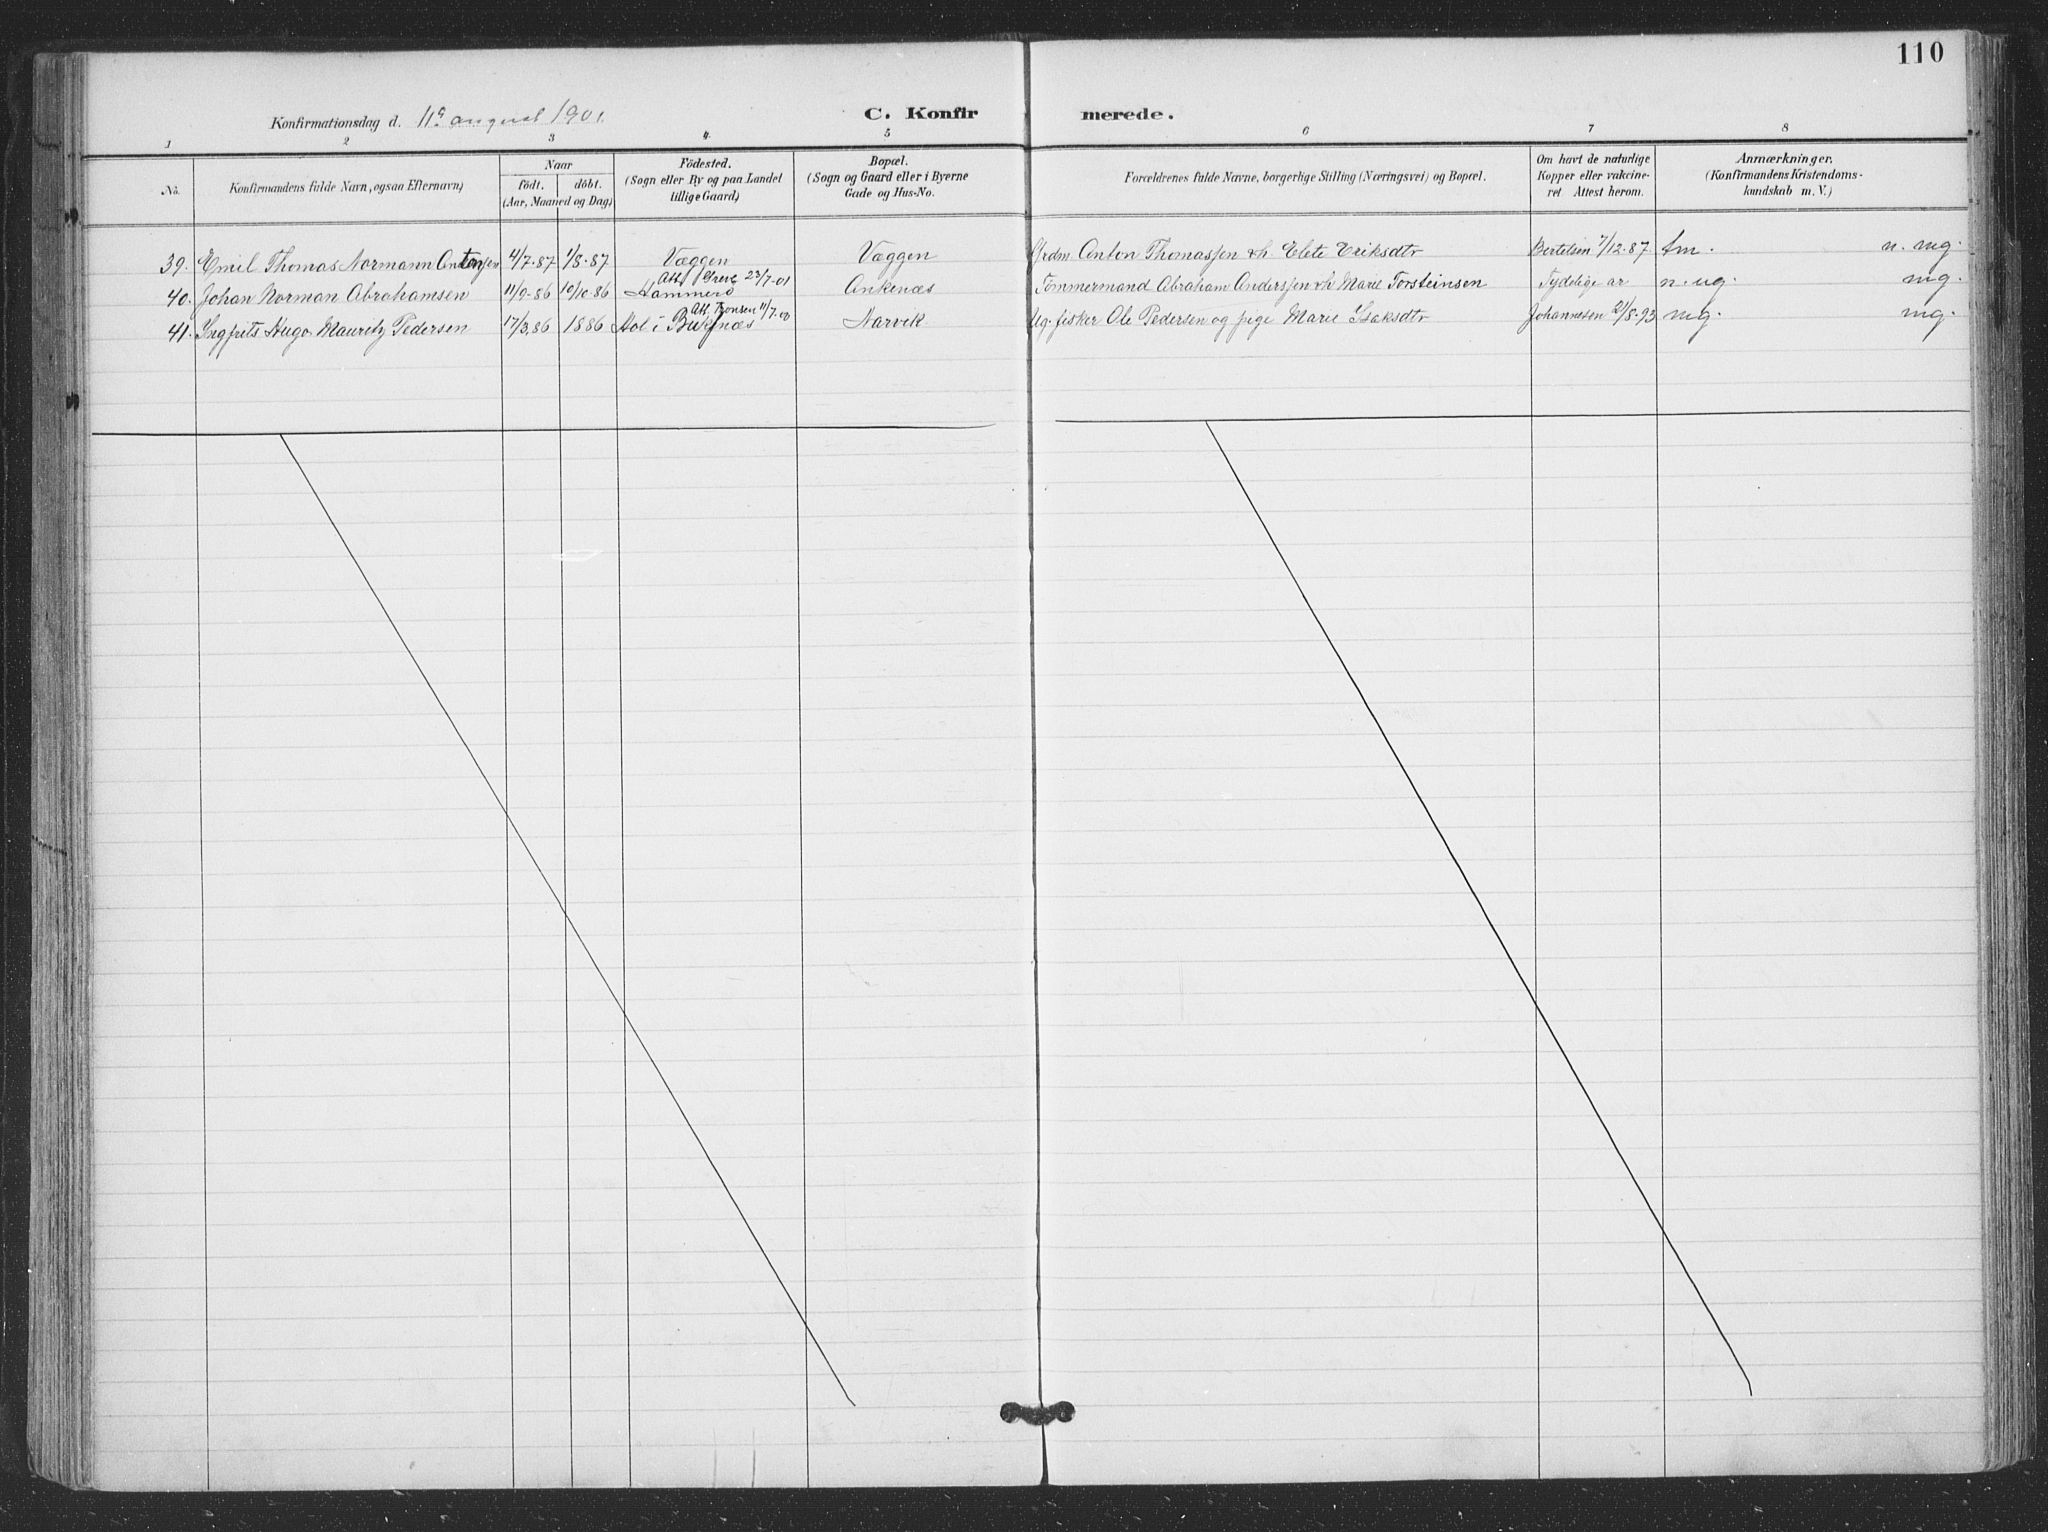 110
Konfirmationsdag d. 11te august 1901.
C. Konfirmerede.
1 2 3 4 5 6 7 8
No. Konfirmandens fulde Navn, ogsaa Efternavn) Naar födt. döbt. (Aar, Maaned og Dag) Födested. (Sogn eller By og paa Landet tillige Gaard) Bopæl. (Sogn og Gaard eller i Byerne Gade og Hus-No. Forældrenes fulde Navne, borgerlige Stilling (Næringsvei) og Bopæl. Om havt de naturlige Kopper eller vakcineret Attest herom. Anmærkninger. (Konfirmandens Kristendomskundskab m. V.)
39. Emil Thomas Normann Antonsen 4/7-87 1/8-87 Væggen Væggen Grdm Anton Thomassen & h. Elete Eriksdtr Bertelsen 7/12-87 tm. n. mg.
40. Johan Norman Abrahamsen 11/9-86 10/10-86 Hammerö Att. Greve 23/7-01 Ankenæs Tømmermand Abraham Anderssen & h Marie Torsteinsen Tydelige ar n. ug. mg.
41. Ingfrits Hugo Mauritz Pedersen 17/3,86 1886 Hol i Buksnæs Att. Tronsen 11/7-00 Narvik Ug. fisker Ole Pedersen og pige Marie Isaksdtr Johannesen 21/8-93 mg. mg.